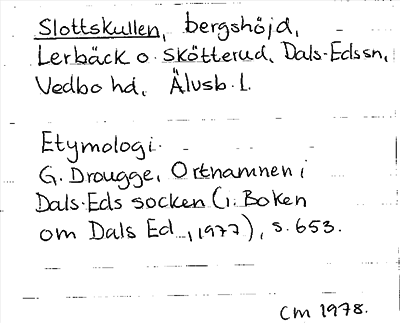 Slottskullen, bergshöjd,
Lerbäck o. Skötterud, Dals-Eds sn,
Vedbo hd, Älvsb. l.
Etymologi.
G. Drougge, Ortnamnen i
Dals-Eds socken (i: Boken
om Dals Ed..., 1977), s. 653.
CM 1978.